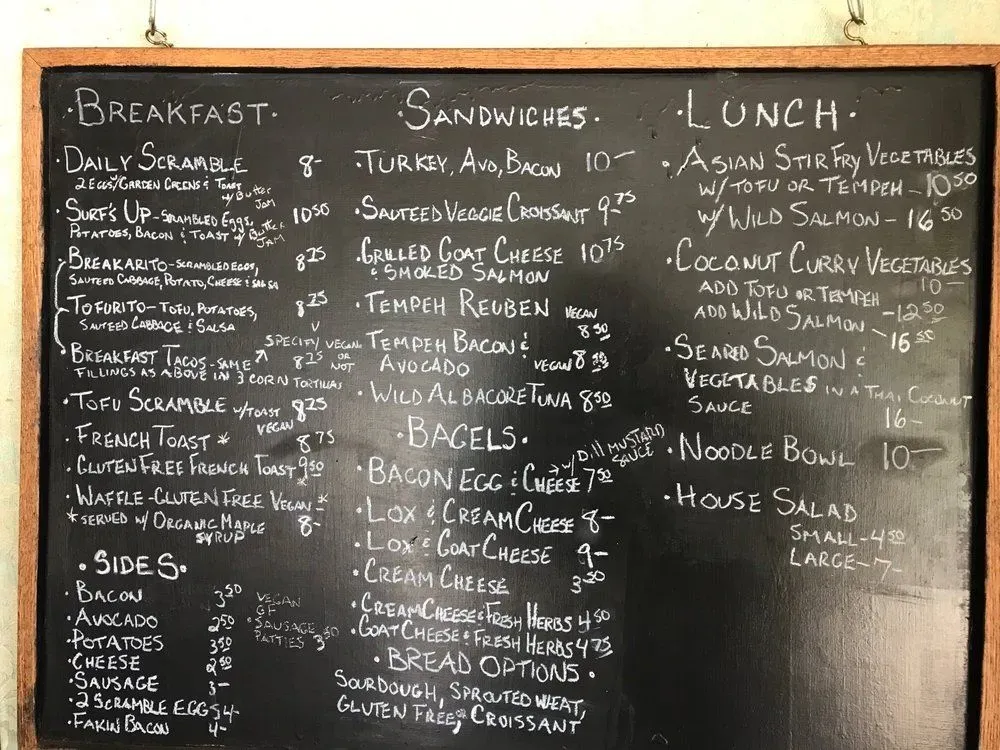 ·BREAKFAST·
·DAILY SCRAMBLE 8-
2 EGGS/GARDEN GREENS & TOAST
w/ Butter
JAM
·SURF'S UP-SCRAMBLED EGGS, 10 50
POTATOES, BACON & TOAST w/ Butter
JAM
·BREAKARITO-SCRAMBLED EGGS, 8 25
SAUTEED CABBAGE, POTATO, CHEESE & SALSA
·TOFURITO-TOFU, POTATOES, 8 25
SAUTEED CABBAGE & SALSA V
SPECIFY VEGAN
OR
NOT
·BREAKFAST TACOS-SAME 8 25
FILLINGS AS ABOVE IN 3 CORN TORTILLAS
·TOFU SCRAMBLE w/TOAST 8 25
VEGAN
·FRENCH TOAST * 8 75
·GLUTEN FREE FRENCH TOAST * 9 50
·WAFFLE-GLUTEN FREE VEGAN-*
*SERVED w/ ORGANIC MAPLE 8-
SYRUP
·SIDES·
·BACON 3 50
·AVOCADO 2 50
·POTATOES 3 50
·CHEESE 2 50
·SAUSAGE 3-
·2 SCRAMBLE EGGS 4-
·FAKIN BACON 4-
VEGAN
GF
·SAUSAGE
PATTIES 3 50
SANDWICHES·
·TURKEY, AVO, BACON 10-
·SAUTEED VEGGIE CROISSANT 9 75
·GRILLED GOAT CHEESE 10 75
& SMOKED SALMON
·TEMPEH REUBEN VEGAN
8 50
·TEMPEH BACON &
AVOCADO VEGAN 8 50
·WILD ALBACORE TUNA 8 50
·BAGELS·
·BACON EGG & CHEESE 7 50
→ w/ Dill MUSTARD
SAUCE
·LOX & CREAM CHEESE 8-
·LOX & GOAT CHEESE 9-
·CREAM CHEESE 3 50
·CREAM CHEESE & FRESH HERBS 4 50
·GOAT CHEESE & FRESH HERBS 4 75
·BREAD OPTIONS·
SOURDOUGH, SPROUTED WHEAT,
GLUTEN FREE, OR CROISSANT
·LUNCH·
·ASIAN STIR FRY VEGETABLES
w/ TOFU OR TEMPEH-10 50
w/ WILD SALMON-16 50
·COCONUT CURRY VEGETABLES
10-
ADD TOFU OR TEMPEH
-12 50
ADD WILD SALMON
-16 50
·SEARED SALMON &
VEGETABLES IN A THAI COCONUT
SAUCE
16-
·NOODLE BOWL 10-
·HOUSE SALAD
SMALL-4 50
LARGE-7-